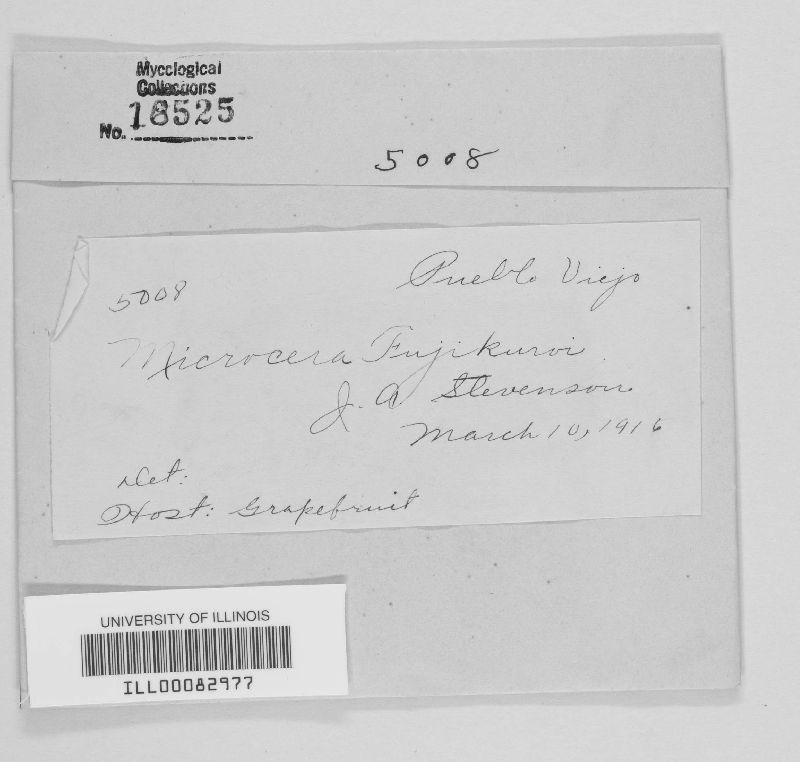 Mycological
Collections
No. 18525
5008
5008
Pueblo Viejo
Microcera Fujikuroi
J. A Stevenson
March 10, 1916
Det:
Host: Grapefruit
UNIVERSITY OF ILLINOIS
ILL00082977